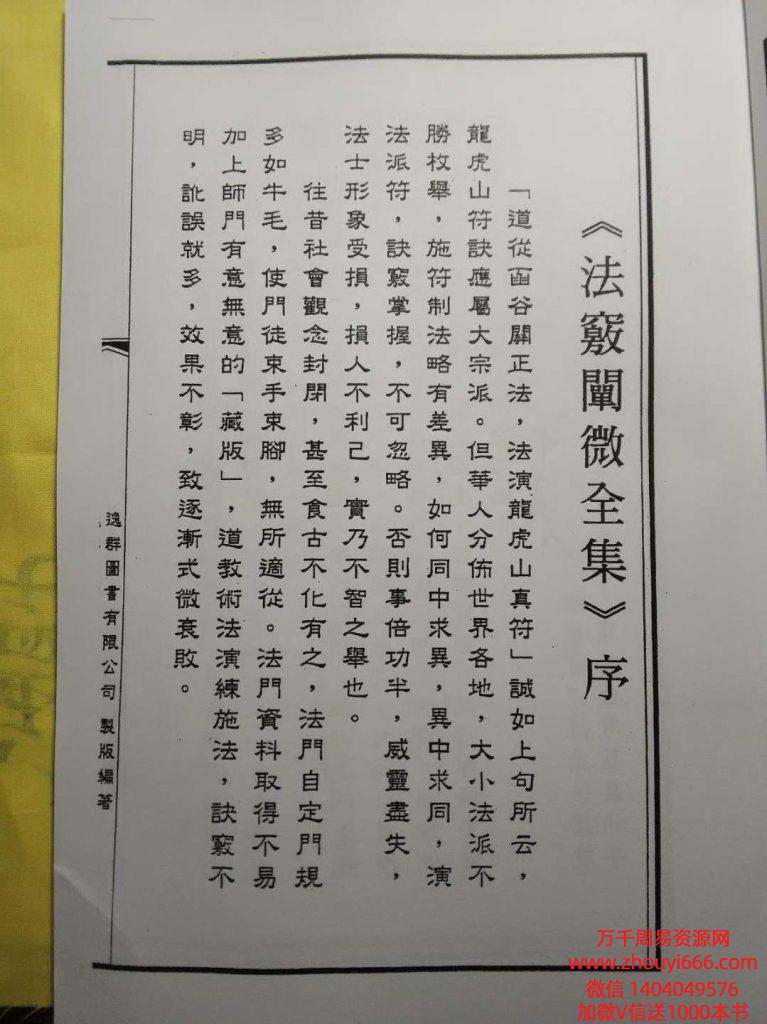 《法竅闡微全集》序
「道從函谷關正法，法演龍虎山真符」誠如上句所云，
龍虎山符訣應屬大宗派。但華人分佈世界各地，大小法派不
勝枚舉，施符制法略有差異，如何同中求異，異中求同，演
法派符，訣竅掌握，不可忽略。否則事倍功半，威靈盡失，
法士形象受損，損人不利己，實乃不智之舉也。
往昔社會觀念封閉，甚至食古不化有之，法門自定門規
多如牛毛，使門徒束手束腳，無所適從。法門資料取得不易
加上師門有意無意的「藏版」，道教術法演練施法，訣竅不
明，訛誤就多，效果不彰，致逐漸式微衰敗。
逸群圖書有限公司 製版編著
万千周易资源网
www.zhouyi666.com
微信 1404049576
加微V信送1000本书